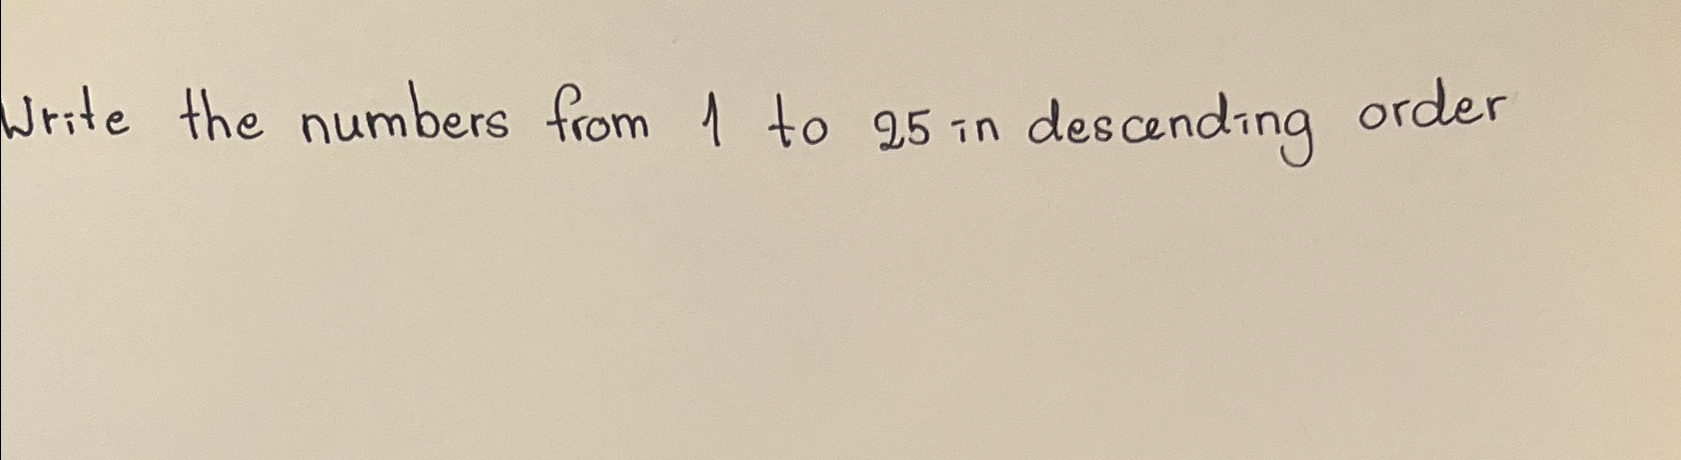 Write the numbers from 1 to 25 in descending order